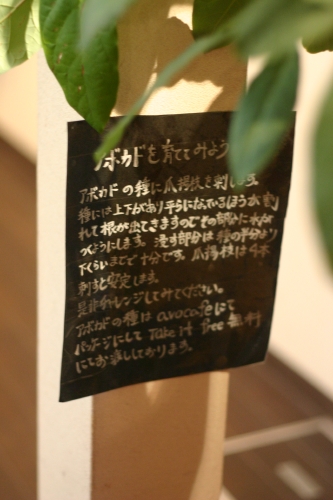 アボカドを育ててみよう
アボカドの種に爪楊枝を刺します。
種には上下があり平らになっているほうが割
れて根が出てきますのでその部分に水が
つくようにします。浸す部分は種の半分より
下くらいまでで十分です。爪楊枝は4本
刺すと安定します。
是非チャレンジしてみてください。
アボカドの種は avocafeにて
パッケージにして Take it free 無料
にてお渡ししております。